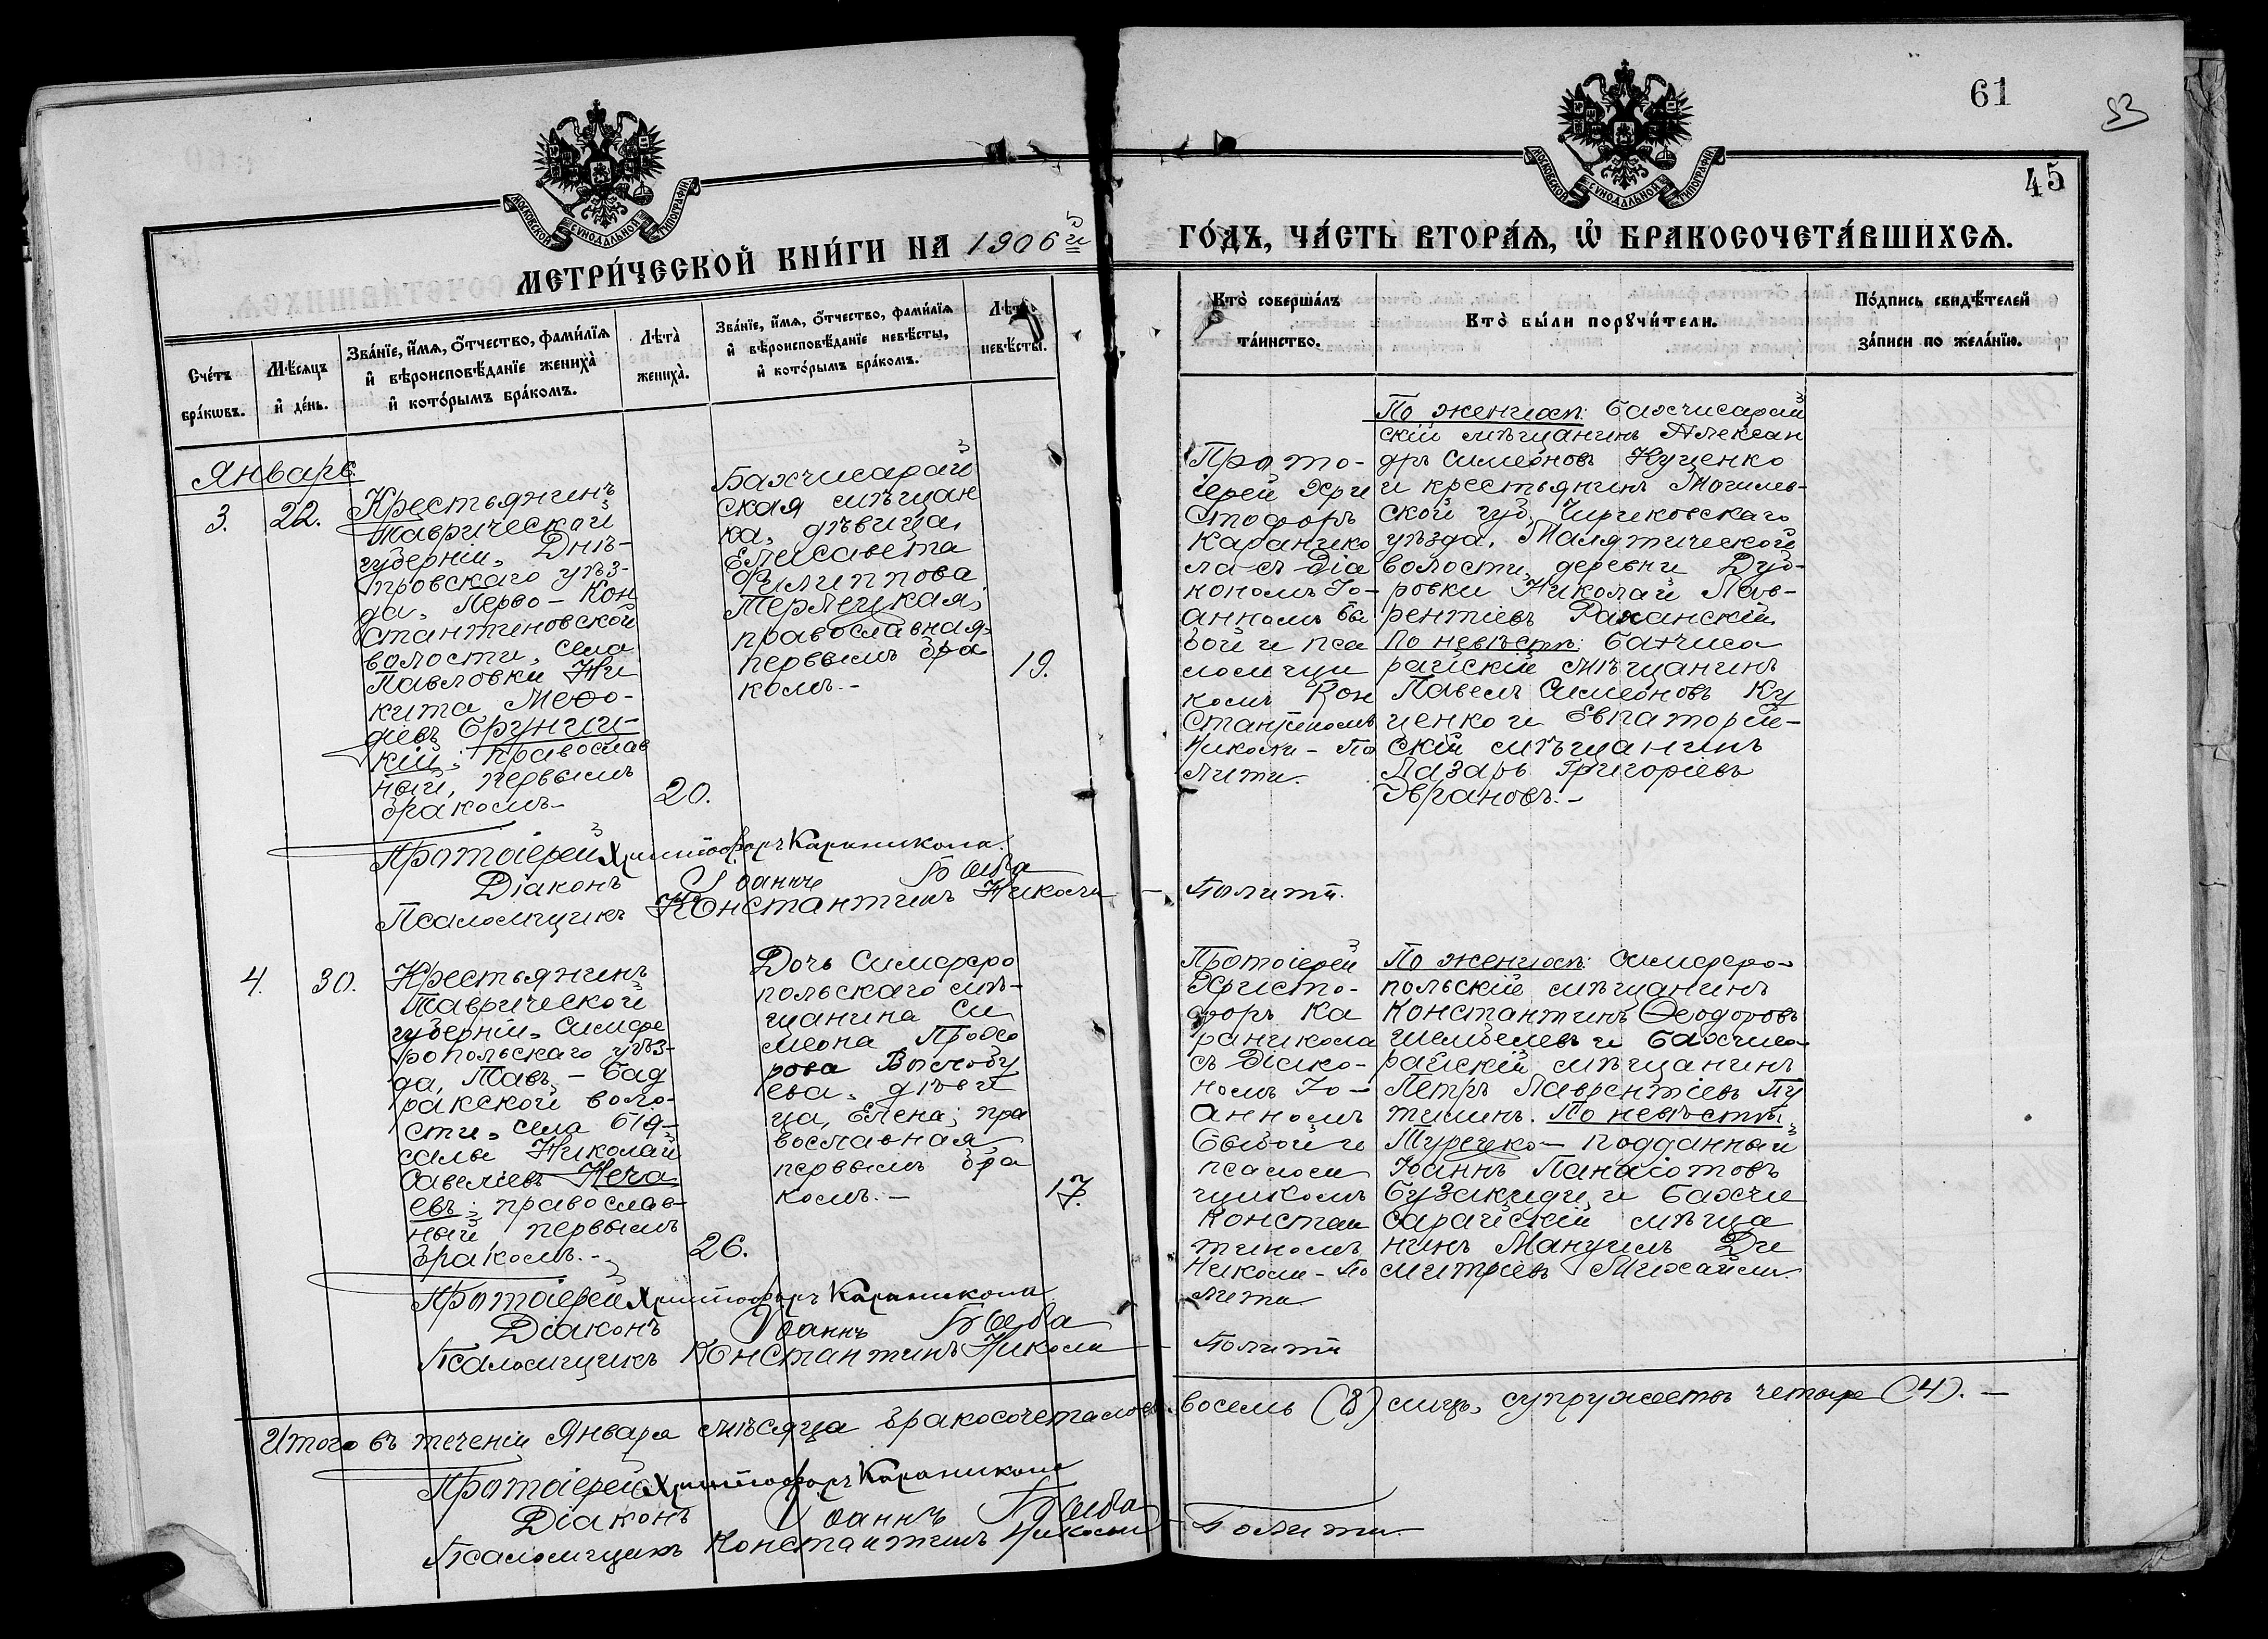 61
83
45
МОСКОВСКОЙ СѴНОДАЛЬНОЙ ТИПОГРАФІИ
МОСКОВСКОЙ СѴНОДАЛЬНОЙ ТИПОГРАФІИ
МЕТРИ́ЧЕСКОЙ КНИ́ГИ НА 1906й
ГО́ДЪ, ЧА́СТЬ ВТОРА́Я, Ѡ҆ БРАКОСОЧЕТА́ВШИХСЯ.
Сче́тъ
бра́кѡвъ.
Мѣ́сяцъ
и҆ де́нь.
Зва́нїе, и҆́мя, ѻ҆́тчество, фами́лїя
и҆ вѣроисповѣ́данїе жениха̀
и҆ кото́рымъ бра́комъ.
Лѣта̀
жениха̀.
Зва́нїе, и҆́мя, ѻ҆́тчество, фами́лїя
и҆ вѣроисповѣ́данїе невѣ́сты,
и҆ кото́рымъ бра́комъ.
Лѣта̀
невѣ́сты.
Кто̀ соверша́лъ
та́инство.
Кто̀ бы́ли порꙋчи́тели.
По́дпись свидѣ́телей
за́писи по жела́нїю.
Январь.
3.
22.
Крестьянинъ
Таврической
губерніи, Днѣ-
провскаго уѣз-
да, Перво-Кон
стантиновской
волости, села
Павловки Ни
кита Меѳо-
діевъ Бруниц-
кій; православ
ный, первымъ
бракомъ.-
20.
Бахчисарай
ская мѣщан
ка, дѣвица,
Елисавета
Филиппова
Терлецкая;
православная,
первымъ бра
комъ.-
19.
Прото-
іерей Хри
стофоръ
Караnико
ла съ діа
кономъ Іо-
анномъ Бы
бой и пса
ломщи
комъ Кон
стантиномъ
Николи-По
лити.
По женихѣ: Бахчисарай
скій мѣщанинъ Алексан
дръ Симеоновъ Куценко
и крестьянинъ Могилев-
ской губ. Чириковскаго
уѣзда, Малятической
волости, деревни Дуб-
ровки Николай Лав-
рентіевъ Раханскій.
По невѣстѣ: Бахчиса
райскій мѣщанинъ
Павелъ Симеоновъ Ку
ценко и Евпаторій-
скій мѣщанинъ
Лазарь Григоріевъ
Эврановъ.-
Протоіерей Христофоръ Караникола.
Діаконъ Іоаннъ Быба
Псаломщикъ Константинъ Николи - Полити.
4.
30.
Крестьянинъ
Таврической
губерніи, Симфе
ропольскаго уѣз-
да, Тавъ-Бад
ракской воло-
сти, села Бія-
салы Николай
Савеліевъ Неча
евъ; православ-
ный, первымъ
бракомъ.-
26.
Дочь Симферо
польскаго мѣ-
щанина Си
меона Прохо
рова Выло
ева, дѣви
ца, Елена; пра
вославная
первымъ бра
комъ.-
17.
Протоіерей
Христо-
форъ Ка
раникола
съ Діако-
номъ Іо-
анномъ
Быбой и
псалом
щикомъ
Констан
тиномъ
Николи-По
лити.
По женихѣ: Симферо-
польскій мѣщанинъ
Константинъ Ѳеодоровъ
Шембелевъ и Бахчиса
райскій мѣщанинъ
Петръ Лаврентіевъ Пу
тилинъ. По невѣстѣ:
Турецко-подданный
Іоаннъ Панаіотовъ
Бузакиди, и Бахчи
сарайскій мѣща
нинъ Мануилъ Ди
митріевъ Михайли.
Протоіерей Христофоръ Караникола
Діаконъ Іоаннъ Быба
Псаломщикъ Константинъ Николи - Полити
Итого въ теченіи Января мѣсяца бракосочеталось восемь (8) лицъ, супружествъ четыре (4).-
Протоіерей Христофоръ Караникола
Діаконъ Іоаннъ Быба
Псаломщикъ Константинъ Николи - Полити